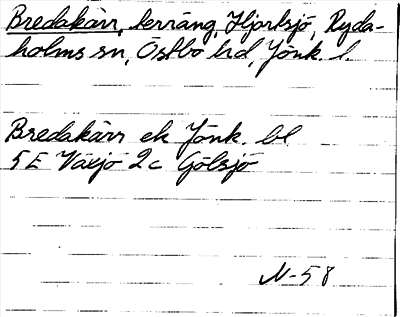 Bredakärr, terräng, Hjortsjö, Ryda-
holms sn, Östbo hd, Jönk. l.
Bredakärr ek Jönk. bl
5E Växjö 2c Gölsjö
N-58